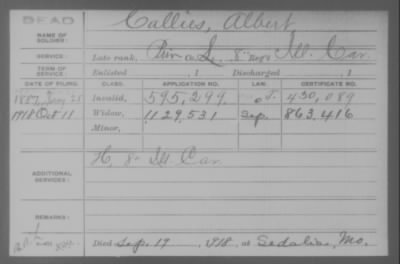 DEAD
NAME OF SOLDIER: Callies, Albert
SERVICE: Late rank, Priv Co. L, 8" Reg't Ill. Cav.
TERM OF SERVICE: Enlisted , 1 Discharged , 1
DATE OF FILING. CLASS. APPLICATION NO. LAW. CERTIFICATE NO.
1887, Invalid, 595,299. 430,089
1918 Oct 11 Widow, 1129,531 Sep. 863,416
Minor,
ADDITIONAL SERVICES: H, 8" Ill. Cav.
REMARKS:
Died Sep. 19, 1918, at Sedalia, Mo.